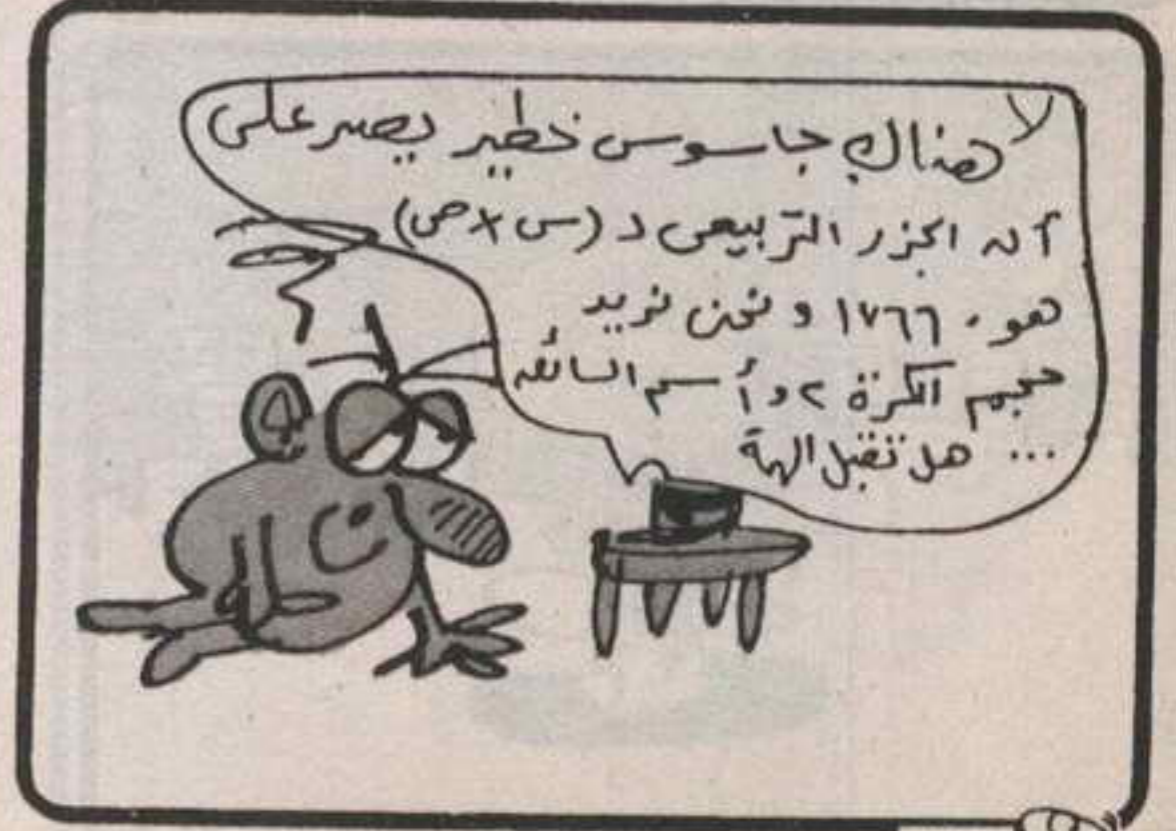 لا هناك جاسوس خطير يصر على
أن الجزر التربيعى د (س+ص)
هو ١٧٦٦ و نحن نريد
حجم الكرة ٢ و أسم السائق
... هل تقبل المهة